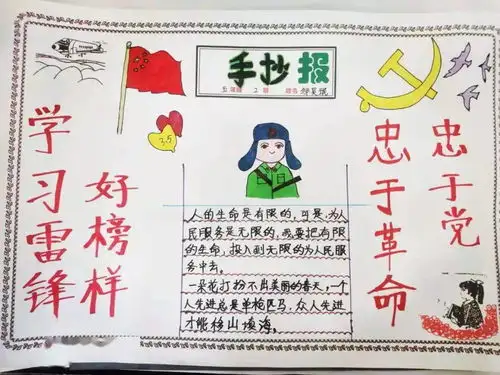 手抄报
五年级 2 班 姓名
3.5
学习雷锋
好榜样
忠于革命
忠于党
人的生命是有限的，可是，为人
民服务是无限的，我要把有限
的生命，投入到无限的为人民服
务中去。
一朵花打扮不出美丽的春天，一个
人先进总是单枪匹马，众人先进
才能移山填海。